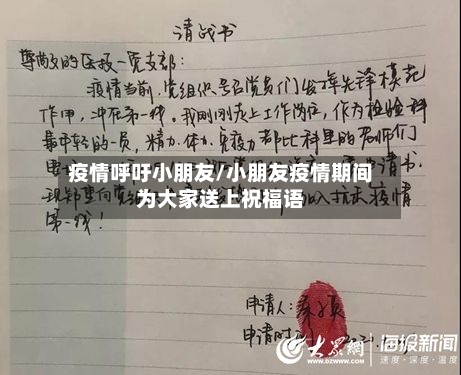 请战书
尊敬的医技一党支部:
疫情当前,党组织号召党员们发挥先锋模范
作用,冲在第一线。我刚刚走上工作岗位,作为检验科
最年轻的一员,精力、体力、免疫力都比科里的老师们
疫情呼吁小朋友/小朋友疫情期间
为大家送上祝福语
请书,
现郑重向党组
加入抗击疫情
第一线!
申请人:
申请时
大众网
海报新闻
速度·深度·温度